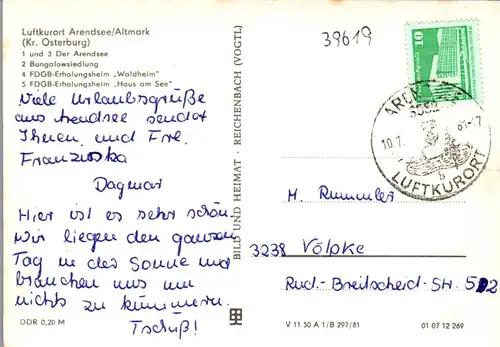 Luftkurort Arendsee/Altmark
(Kr. Osterburg)
1 und 3 Der Arendsee
2 Bungalowsiedlung
4 FDGB-Erholungsheim „Waldheim"
5 FDGB-Erholungsheim „Haus am See"
Viele Urlaubsgrüße
aus Arendsee sendet
Ihnen und Frl.
Franziska
Dagmar
Hier ist es sehr schön
Wir liegen den ganzen
Tag in der Sonne und
brauchen uns um
nichts zu kümmern.
Tschüß!
DDR 0,20 M
BILD UND HEIMAT · REICHENBACH (VOGTL)
39619
10
LUFTKURORT
b
H. Rummler
3238 Völpke
Rud.-Breitscheid-Str. 52
V 11 50 A 1/B 297/81
01 07 12 269